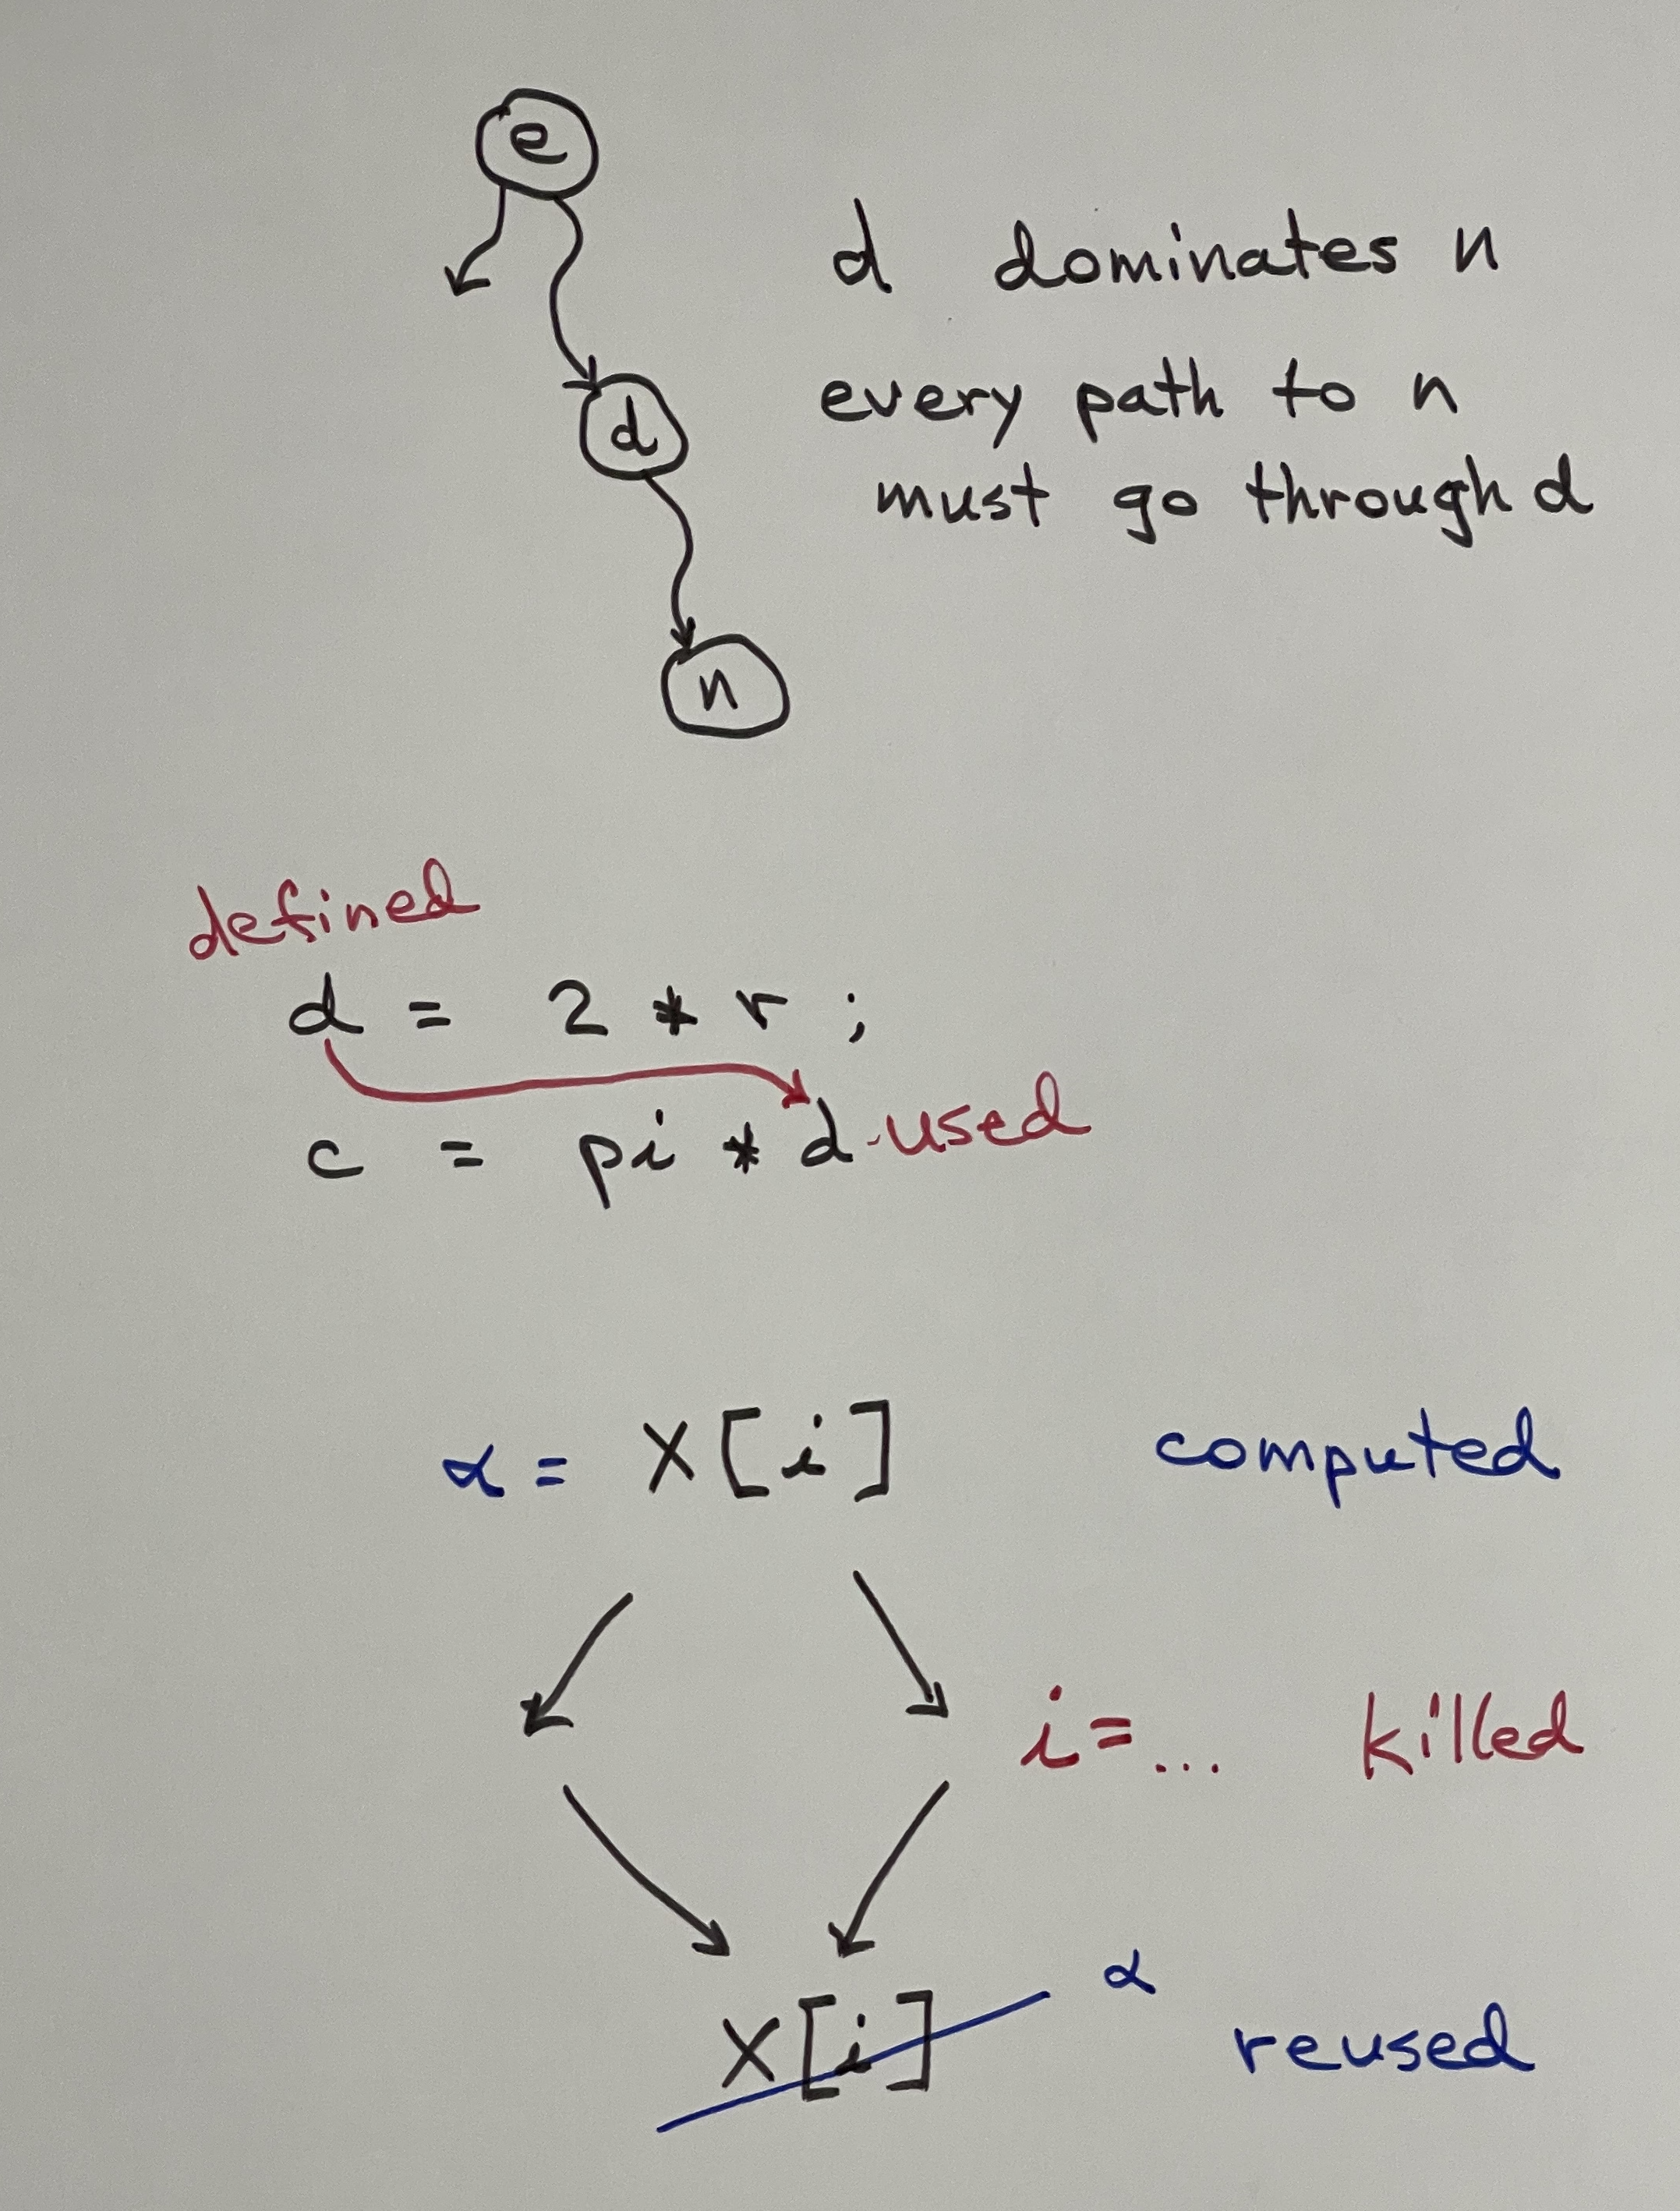 e
d dominates n
every path to n
d
must go through d
n
defined
d = 2 * r ;
c = pi * d used
α = X[i] computed
i = ... killed
α
X[i]
reused